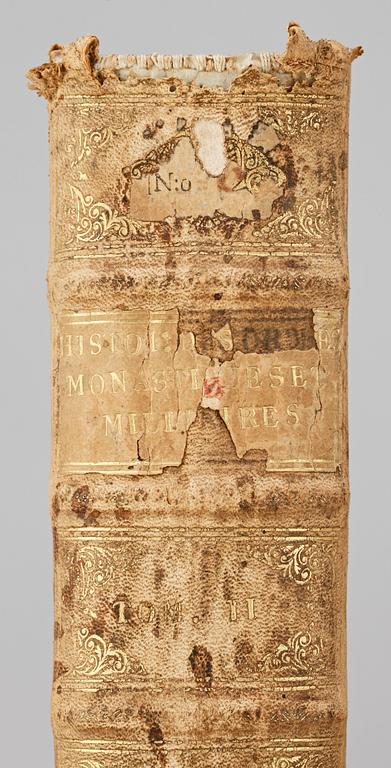 N:o
HISTOI D S ORDRE
MONAST QUESET
MILI IRES
TOM. II